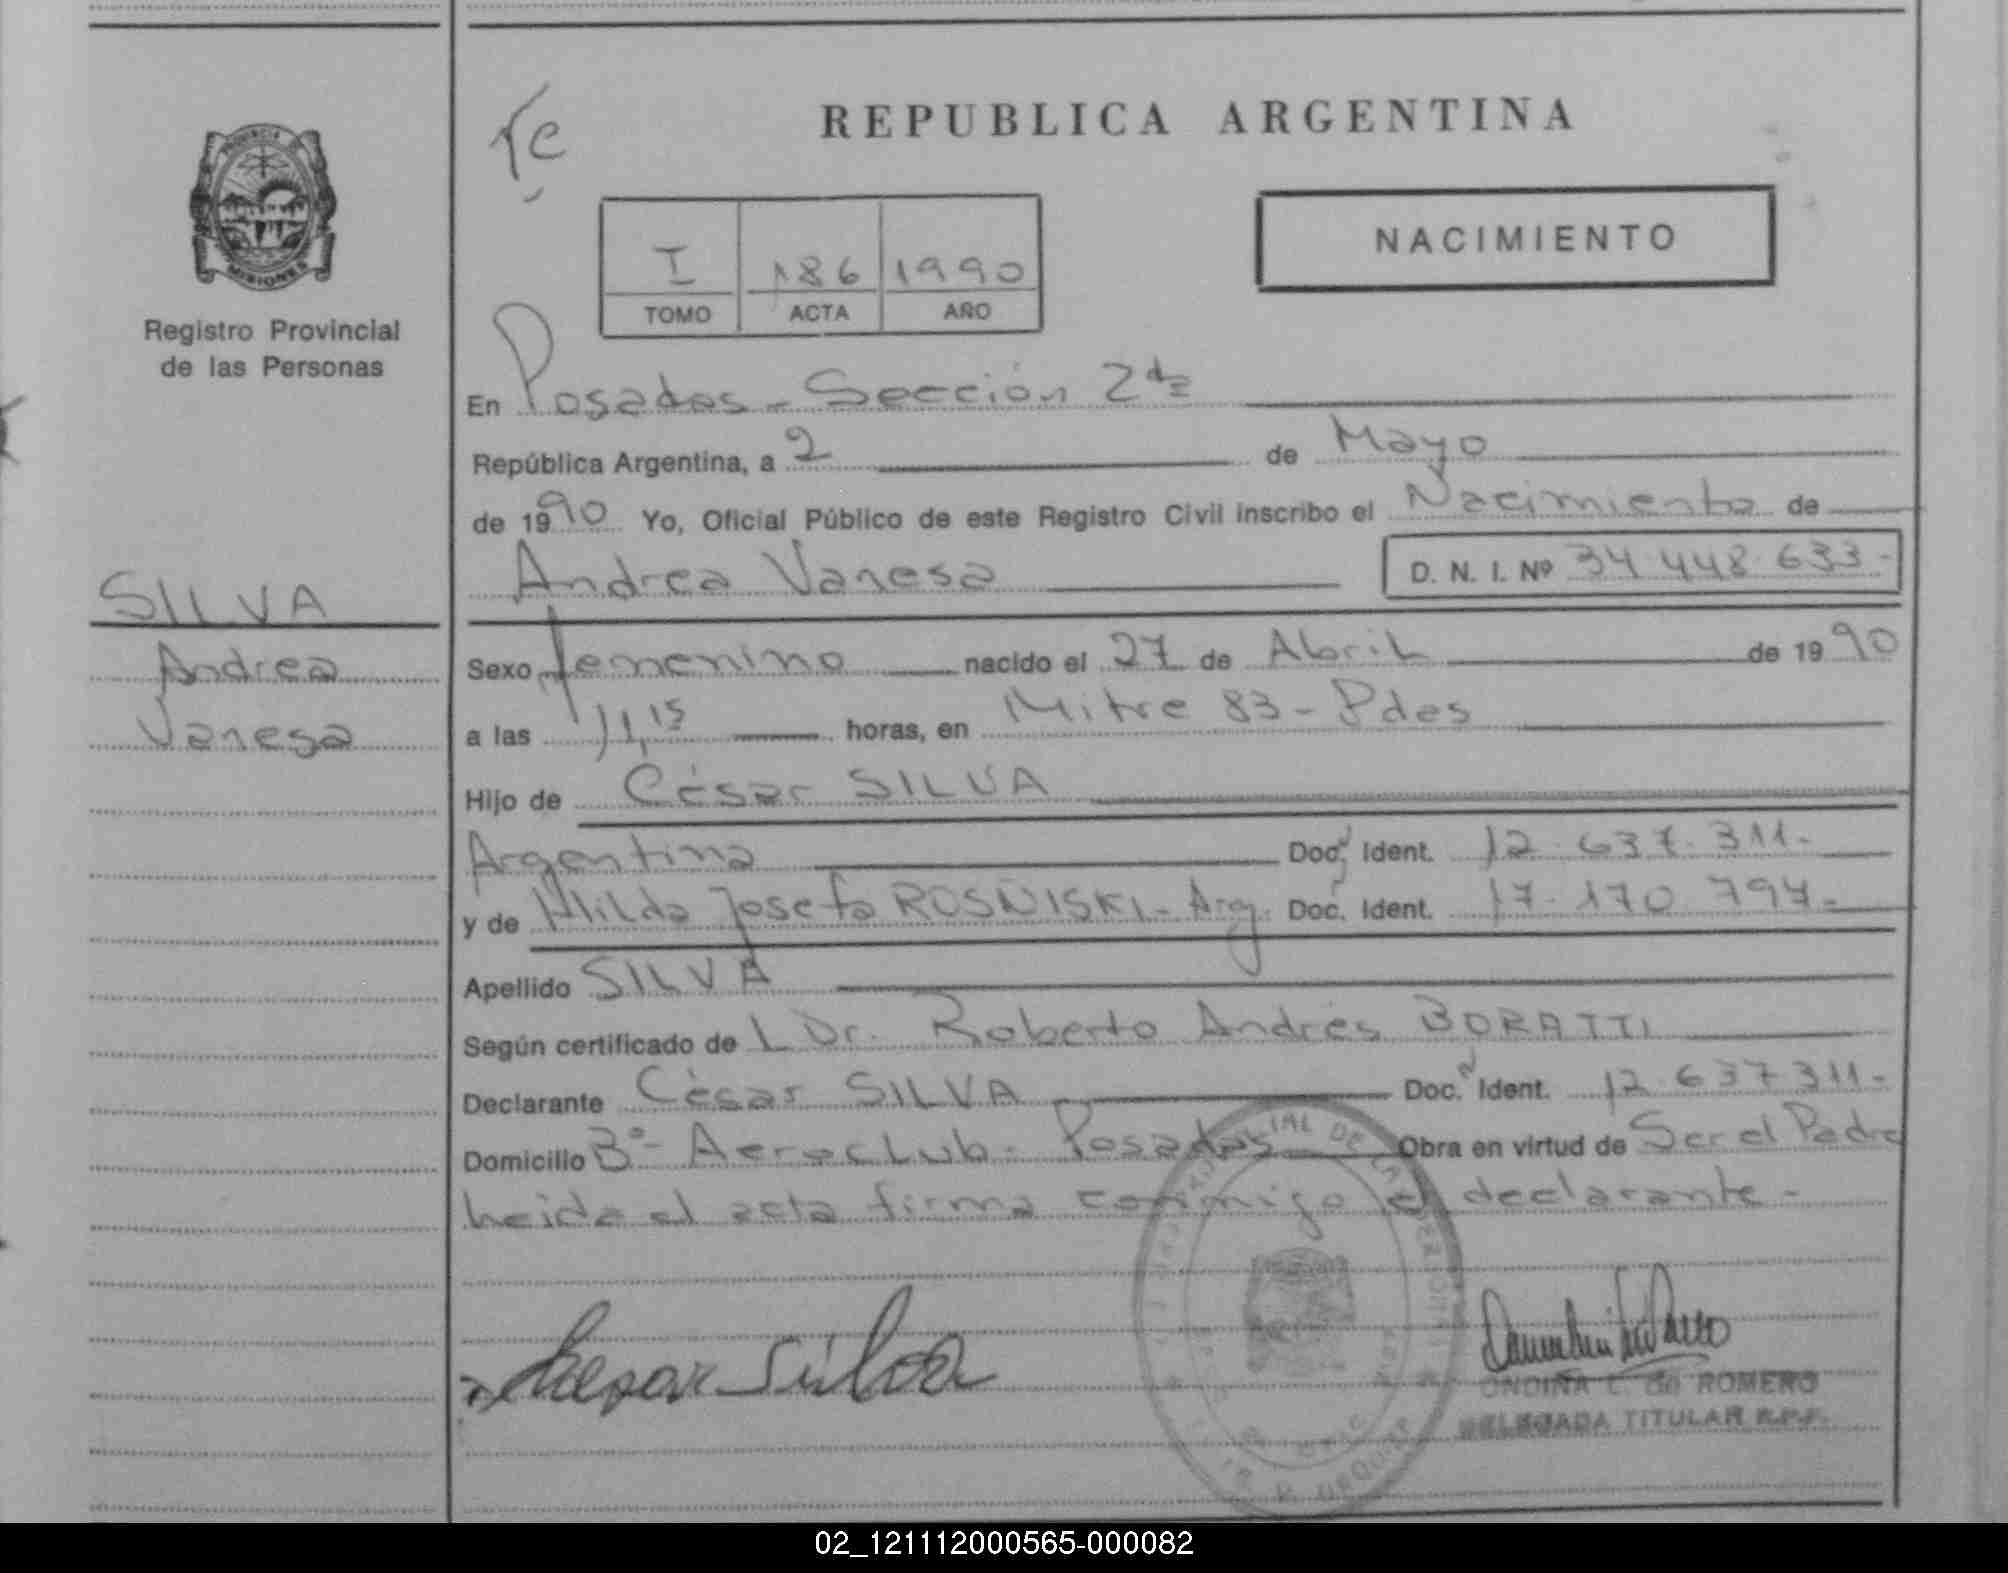 REPUBLICA ARGENTINA
PROVINCIA DE
MISIONES
Registro Provincial
de las Personas
I 186 1990
TOMO ACTA AÑO
NACIMIENTO
En Posadas - Sección 2da
República Argentina, a 2 de Mayo
de 1990 Yo, Oficial Público de este Registro Civil inscribo el Nacimiento de
Andrea Vanesa D. N. I. Nº 34.448.633-
SILVA
Andrea
Vanesa
Sexo femenino nacido el 27 de Abril de 1990
a las 11,15 horas, en Mitre 83 - Pdas
Hijo de César SILVA
Argentina Doc. Ident. 12.637.311-
y de Hilda Josefa ROSÑISKI - Arg. Doc. Ident. 17.170.797-
Apellido SILVA
Según certificado de L Dr. Roberto Andrés BORATTI
Declarante César SILVA Doc. Ident. 12.637311-
Domicilio Bº- AeroClub - Posadas Obra en virtud de Ser el Padre
leida el acta firma conmigo el declarante -
Cesar Silva
ONDINA L. de ROMERO
DELEGADA TITULAR R.P.P.
02_121112000565-000082